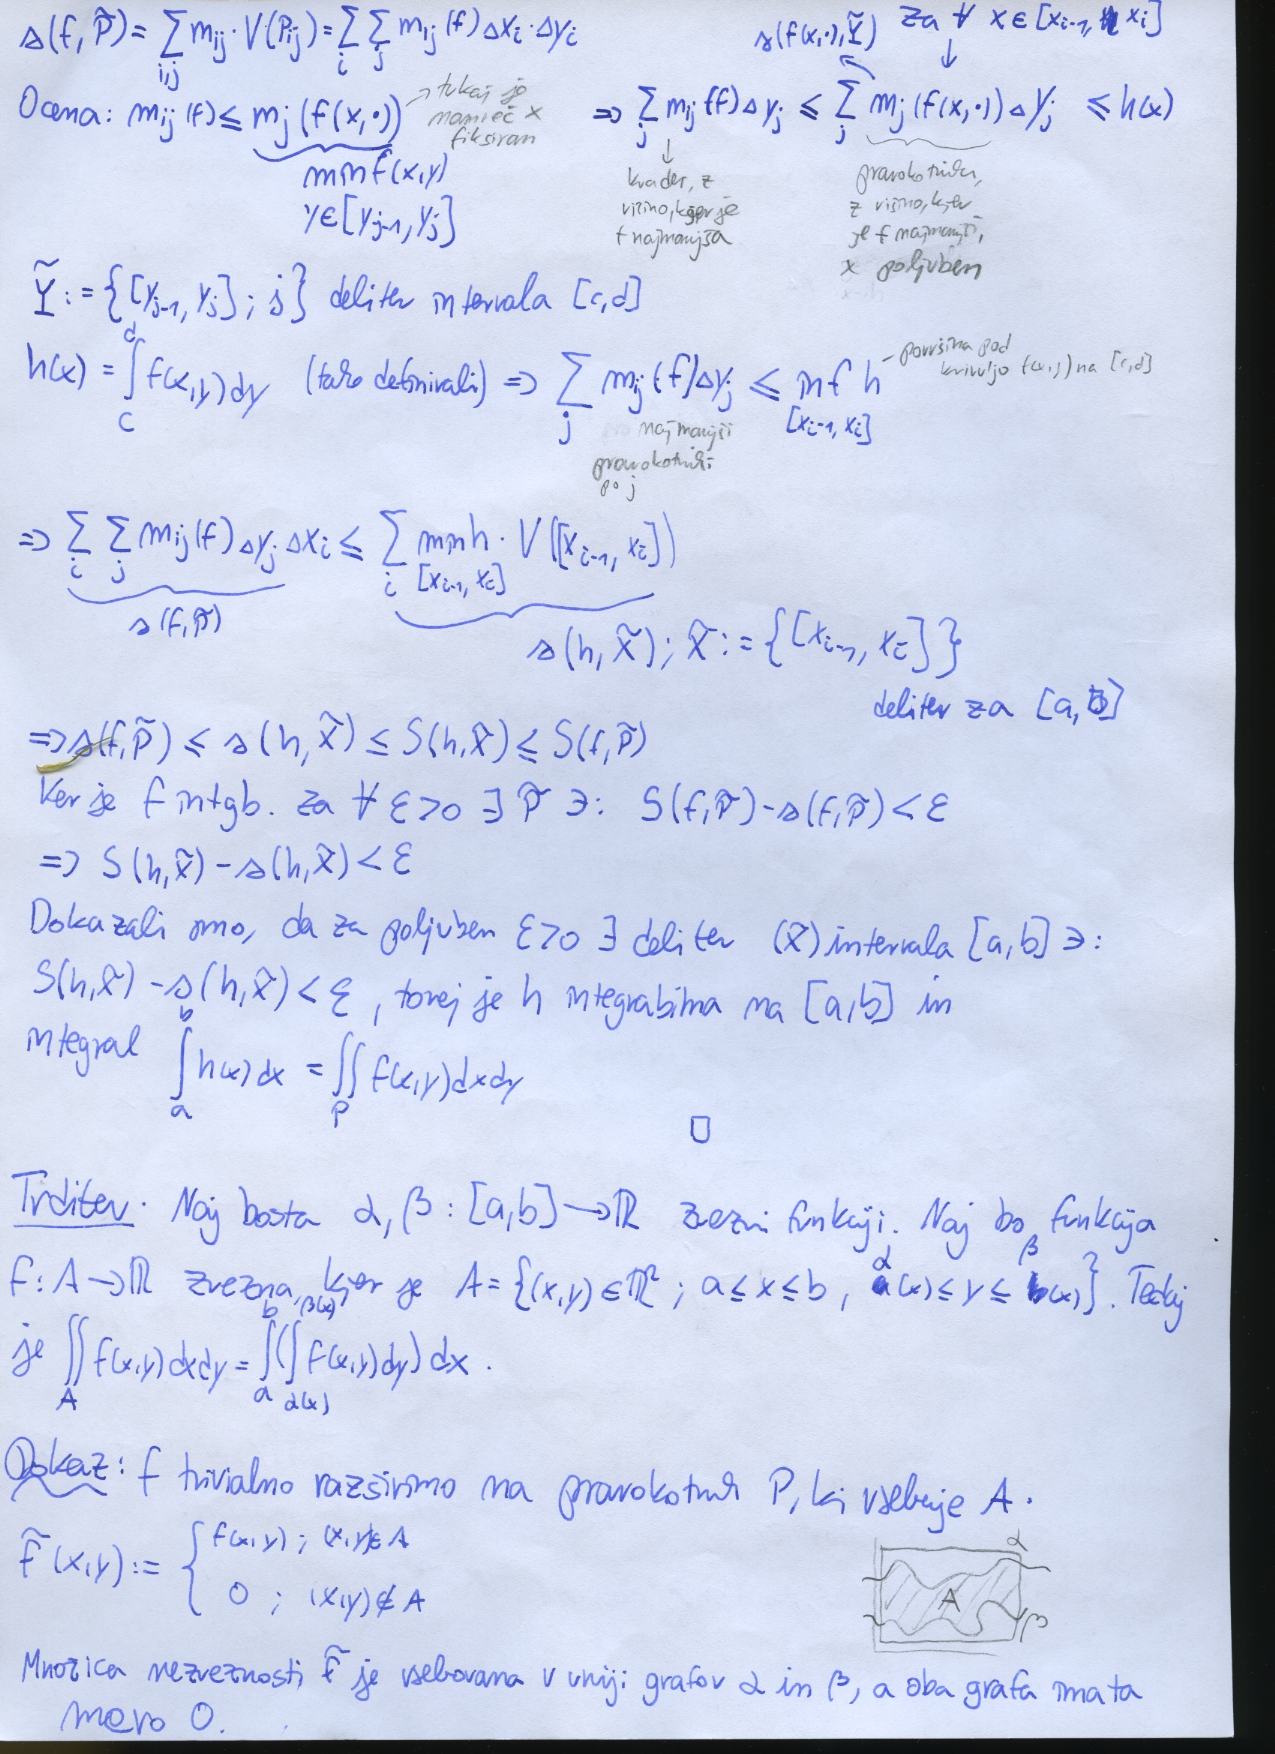 s(f,P̃) = ∑_{i,j} m_ij · V(P_ij) = ∑_i ∑_j m_ij(f) Δx_i · Δy_i
s(f(x,·),Ỹ) za ∀ x∈[x_{i-1}, x_i]
Ocena: m_ij(f) ≤ m_j(f(x,·)) → tukaj je namreč x fiksiran
⇒ ∑_j m_ij(f) Δy_j ≤ ∑_j m_j(f(x,·)) ΔY_j ≤ h(x)
min f(x,y)
y∈[y_{j-1}, y_j]
kvader, z
višino, kjer je
f najmanjša
pravokotniki,
z višino, kjer
je f najmanjši,
x poljuben
Ỹ := {[y_{j-1}, y_j]; j} delitev intervala [c,d]
h(x) = ∫_c^d f(x,y)dy (tako definirali) ⇒ ∑_j m_ij(f)Δy_j ≤ inf_{[x_{i-1}, x_i]} h
- površina pod
krivuljo f(x,y) na [c,d]
najmanjši
pravokotniki
po j
⇒ ∑_i ∑_j m_ij(f) Δy_j Δx_i ≤ ∑_i min_{[x_{i-1}, x_i]} h · V([x_{i-1}, x_i])
s(f,P̃)
s(h,X̃); X̃ := {[x_{i-1}, x_i]}
delitev za [a,b]
⇒ s(f,P̃) ≤ s(h,X̃) ≤ S(h,X̃) ≤ S(f,P̃)
Ker je f intgb. za ∀ ε>0 ∃ P̃ ∋: S(f,P̃) - s(f,P̃) < ε
⇒ S(h,X̃) - s(h,X̃) < ε
Dokazali smo, da za poljuben ε>0 ∃ delitev (X̃) intervala [a,b] ∋:
S(h,X̃) - s(h,X̃) < ε, torej je h integrabilna na [a,b] in
integral ∫_a^b h(x)dx = ∬_P f(x,y)dxdy
□
Trditev. Naj bosta α, β : [a,b] → ℝ zvezni funkciji. Naj bo funkcija
f: A → ℝ zvezna, kjer je A = {(x,y) ∈ ℝ²; a ≤ x ≤ b, α(x) ≤ y ≤ β(x)}. Tedaj
je ∬_A f(x,y)dxdy = ∫_a^b (∫_{α(x)}^{β(x)} f(x,y)dy) dx.
Dokaz: f trivialno razširimo na pravokotnik P, ki vsebuje A.
f̃(x,y) := { f(x,y) ; (x,y)∈A
0 ; (x,y)∉A
α
A
β
Množica nezveznosti f̃ je vsebovana v uniji grafov α in β, a oba grafa imata
mero 0.